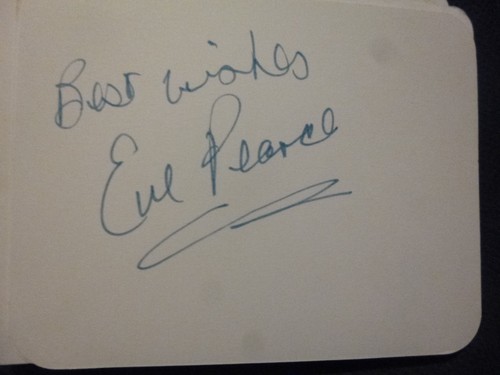 Best wishes
Eve Pearce